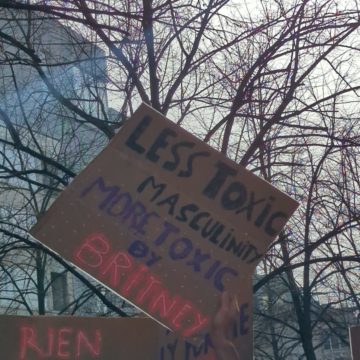 LESS TOXIC
MASCULINITY
MORE TOXIC
BY
BRITNEY
RIEN